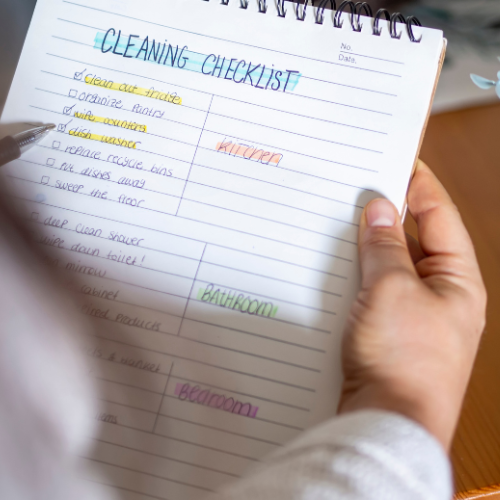 No.
Date.
CLEANING CHECKLIST
clean out fridge
organize pantry
wipe counters
dish washer
replace recycle bins
put dishes away
sweep the floor
kitchen
deep clean shower
wipe down toilet!
mirrow
cabinet
products
BATHROOM
Bedroom